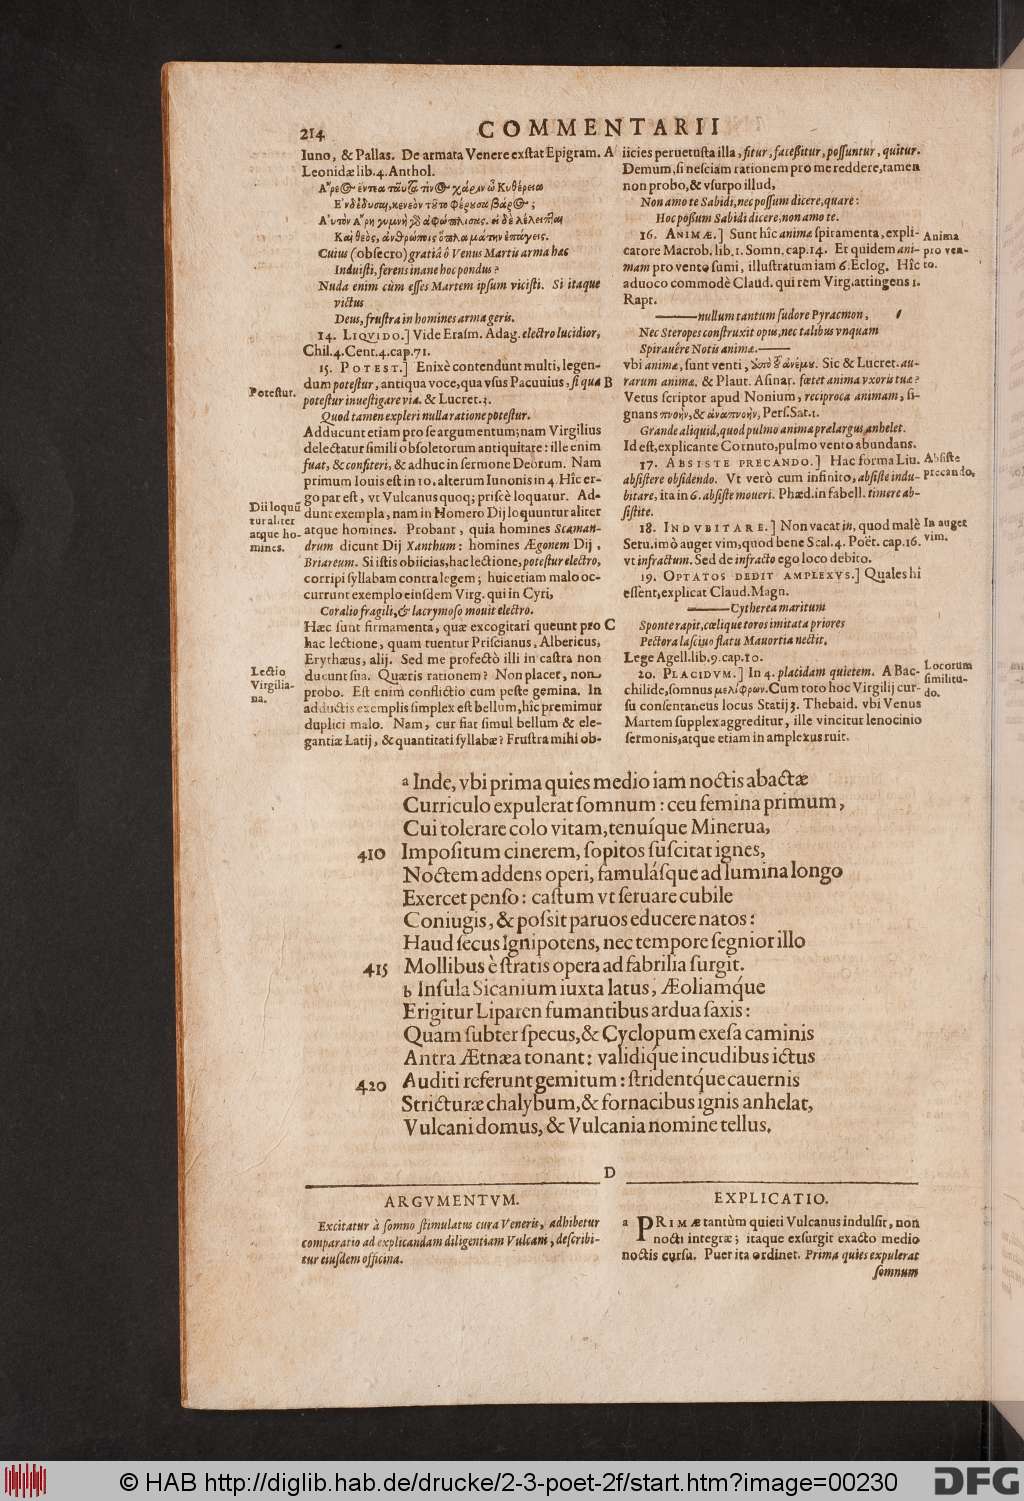 214
COMMENTARII
Iuno, & Pallas. De armata Venere exstat Epigram.
Leonidæ lib. 4. Anthol.
Cuius (obsecro) gratiâ ô Venus Martis arma hæc
Induisti, ferens inane hoc pondus?
Nuda enim cùm esses Martem ipsum vicisti. Si itaque
victus
Deus, frustra in homines arma geris.
14. LIQVIDO.] Vide Erasm. Adag. electro lucidior,
Chil. 4. Cent. 4. cap. 71.
15. POTEST.] Enixè contendunt multi, legen-
dum potestur, antiqua voce, qua vsus Pacuuius, si qua
potestur inuestigare via. & Lucret. 3.
Quod tamen expleri nulla ratione potestur.
Adducunt etiam pro se argumentum; nam Virgilius
delectatur simili obsoletorum antiquitate: ille enim
fuat, & confiteri, & adhuc in sermone Deorum. Nam
primum Iouis est in 10. alterum Iunonis in 4. Hîc er-
go par est, vt Vulcanus quoq; priscè loquatur. Ad-
dunt exempla, nam in Homero Dij loquuntur aliter
atque homines. Probant, quia homines Scaman-
drum dicunt Dij Xanthum: homines Ægonem Dij,
Briareum. Si istis obiicias, hac lectione, potestur electro,
corripi syllabam contra legem; huic etiam malo oc-
currunt exemplo eiusdem Virg. qui in Cyri,
Coralio fragili, & lacrymoso mouit electro.
Hæc sunt firmamenta, quæ excogitari queunt pro
hac lectione, quam tuentur Priscianus, Albericus,
Erythæus, alij. Sed me profectò illi in castra non
ducunt sua. Quæris rationem? Non placet, non
probo. Est enim conflictio cum peste gemina. In
adductis exemplis simplex est bellum, hîc premimur
duplici malo. Nam, cur fiat simul bellum & ele-
gantiæ Latij, & quantitati syllabæ? Frustra mihi ob-
Potestur.
Dii loquũ
tur aliter
atque ho-
mines.
Lectio
Virgilia-
na.
A
B
C
iicies peruetusta illa, fitur, facessitur, possuntur, quitur.
Demum, si nesciam rationem pro me reddere, tamen
non probo, & vsurpo illud,
Non amo te Sabidi, nec possum dicere, quare:
Hoc possum Sabidi dicere, non amo te.
16. ANIMÆ.] Sunt hîc animæ spiramenta, expli-
catore Macrob. lib. 1. Somn. cap. 14. Et quidem ani-
mam pro vento sumi, illustratum iam 6. Eclog. Hîc
aduoco commodè Claud. qui rem Virg. attingens 1.
Rapt.
nullum tantum sudore Pyracmon,
Nec Steropes construxit opus, nec talibus vnquam
Spirauêre Notis animæ.
vbi animæ, sunt venti, Sic & Lucret. au-
rarum animæ. & Plaut. Asinar. fœtet anima vxoris tuæ?
Vetus scriptor apud Nonium, reciproca animam, si-
gnans πνοὴν, & ἀναπνοὴν, Pers. Sat. 1.
Grande aliquid, quod pulmo animæ prælargus anhelet.
Id est, explicante Cornuto, pulmo vento abundans.
17. ABSISTE PRECANDO.] Hac forma Liu.
absistere obsidendo. Vt verò cum infinito, absiste indu-
bitare, ita in 6. absiste moueri. Phæd. in fabell. timere ab-
sistite.
18. INDVBITARE.] Non vacat in, quod malè
Seru. imò auget vim, quod bene Scal. 4. Poët. cap. 16.
vt infractum. Sed de infracto ego loco debito.
19. OPTATOS DEDIT AMPLEXVS.] Quales hi
essent, explicat Claud. Magn.
Cytherea maritum
Sponte rapit, cœlique toros imitata priores
Pectora lasciuo flatu Mauortia nectit.
Lege Agell. lib. 9. cap. 10.
20. PLACIDVM.] In 4. placidam quietem. A Bac-
chilide, somnus μελίφρων. Cum toto hoc Virgilij cur-
su consentaneus locus Statij 3. Thebaid. vbi Venus
Martem supplex aggreditur, ille vincitur lenocinio
sermonis, atque etiam in amplexus ruit.
Anima
pro ven-
to.
Absiste
precando,
In auget
vim.
Locorum
similitu-
do.
a Inde, vbi prima quies medio iam noctis abactæ
Curriculo expulerat somnum: ceu femina primum,
Cui tolerare colo vitam, tenuíque Minerua,
410 Impositum cinerem, sopitos suscitat ignes,
Noctem addens operi, famulásque ad lumina longo
Exercet penso: castum vt seruare cubile
Coniugis, & possit paruos educere natos:
Haud secus Ignipotens, nec tempore segnior illo
415 Mollibus è stratis opera ad fabrilia surgit.
b Insula Sicanium iuxta latus, Æoliamq́ue
Erigitur Liparen fumantibus ardua saxis:
Quam subter specus, & Cyclopum exesa caminis
Antra Ætnæa tonant: validiq́ue incudibus ictus
420 Auditi referunt gemitum: stridentq́ue cauernis
Stricturæ chalybum, & fornacibus ignis anhelat,
Vulcani domus, & Vulcania nomine tellus.
D
ARGVMENTVM.
Excitatur à somno stimulatus cura Veneris, adhibetur
comparatio ad explicandam diligentiam Vulcani, describi-
tur eiusdem officina.
EXPLICATIO.
a PRIMÆ tantùm quieti Vulcanus indulsit, non
nocti integræ; itaque exsurgit exacto medio
noctis cursu. Puer ita ordinet. Prima quies expulerat
somnum
© HAB http://diglib.hab.de/drucke/2-3-poet-2f/start.htm?image=00230
DFG